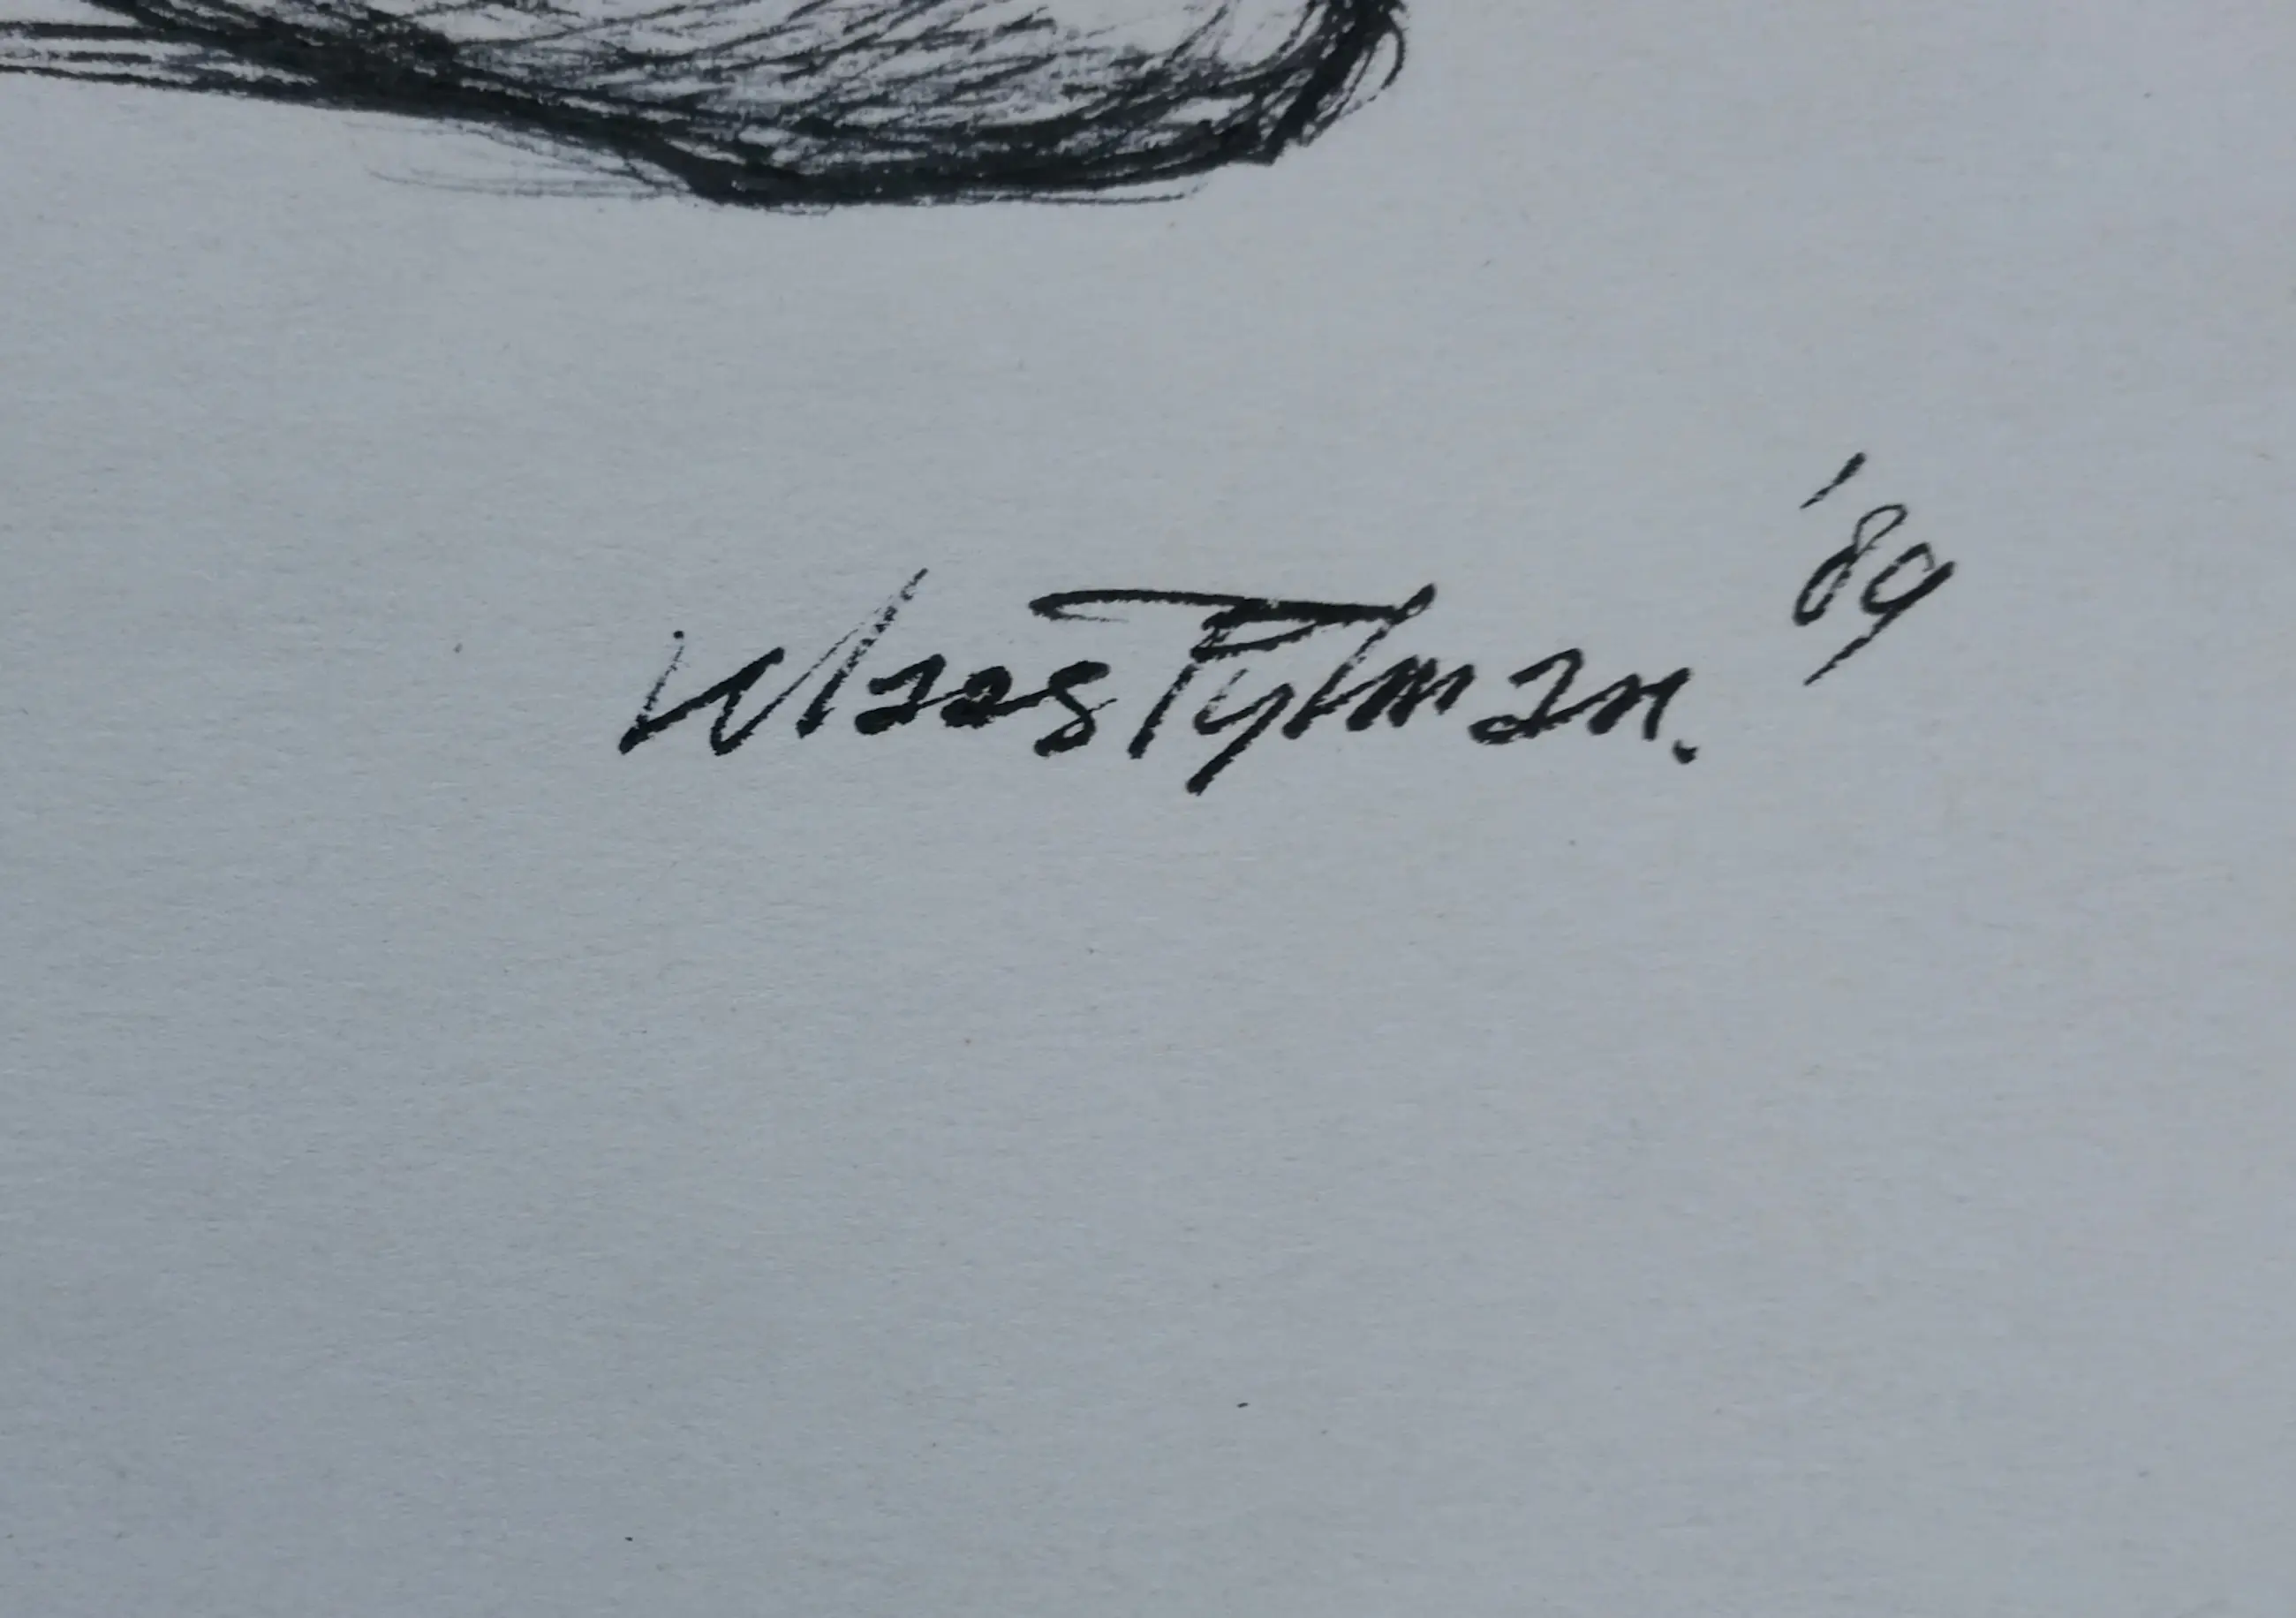 Klaas Pylman. '89